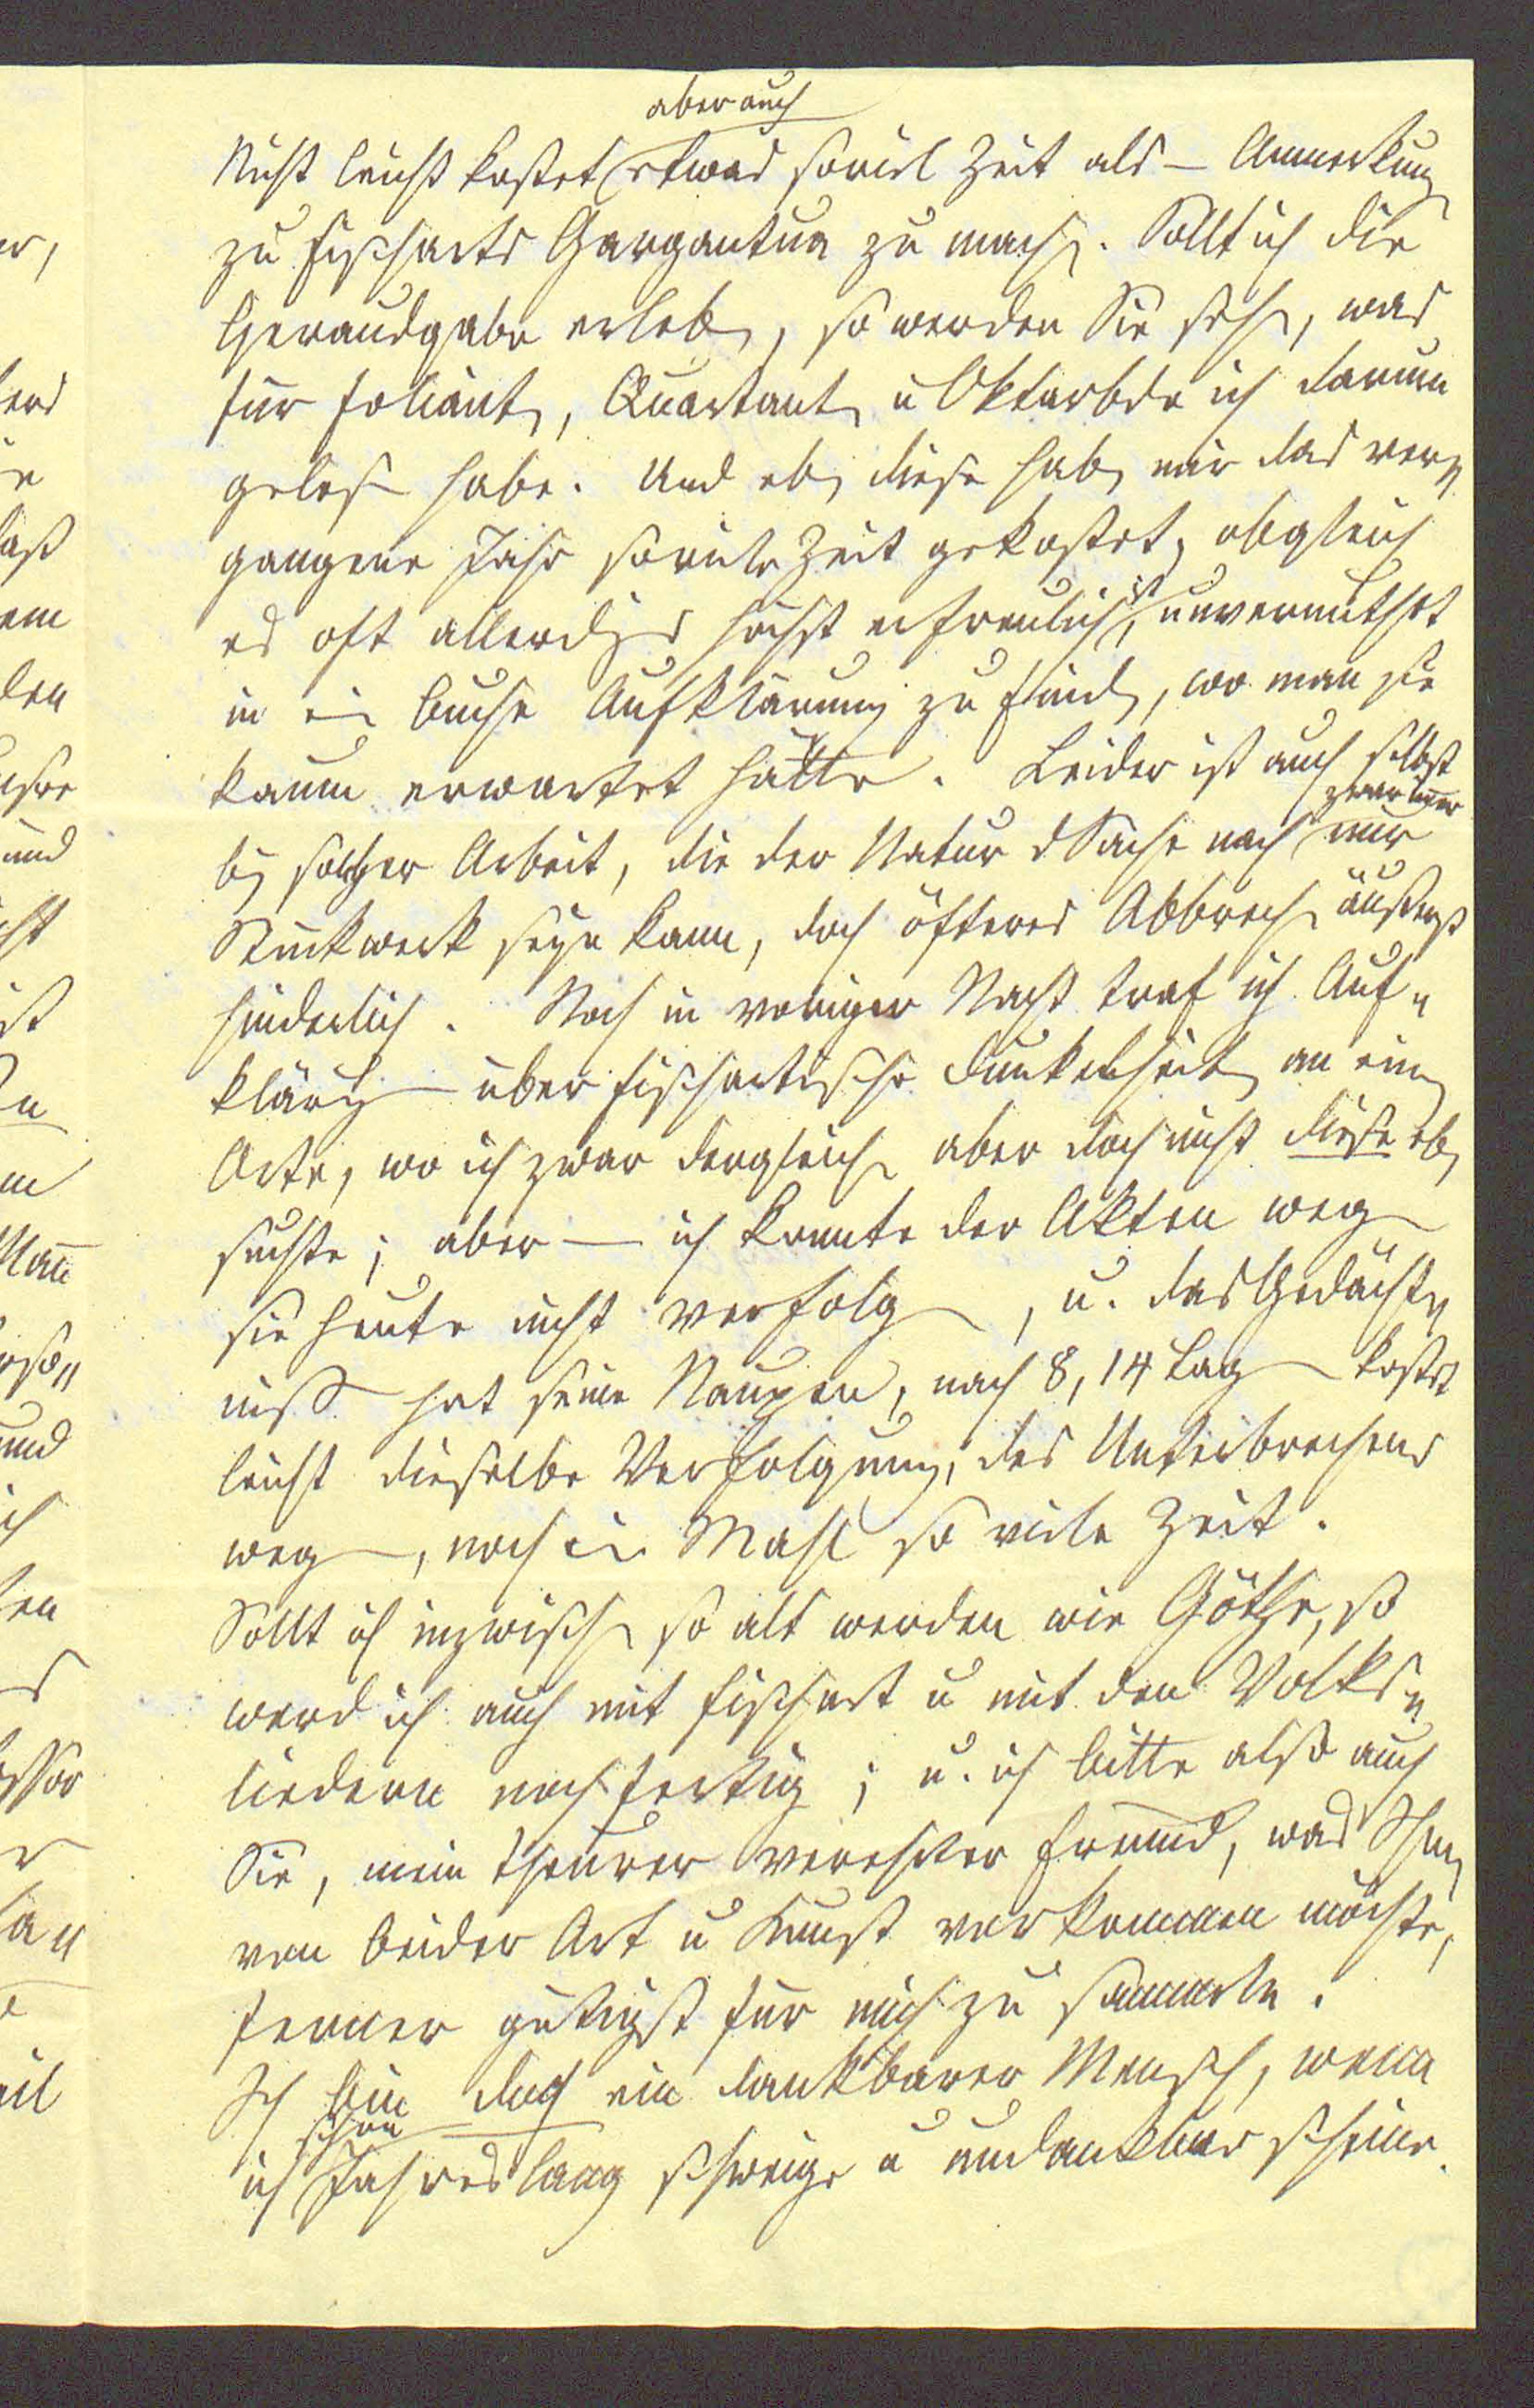 aber auch
Nicht leicht kostet etwas soviel Zeit als – Anmerkung
zu Fischarts Gargantua zu mach. Sollt ich die
Herausgabe erleb, so werden Sie seh, was
für Foliant, Quartant u Oktavbde ich darum
geles habe. Und eb diese hab mir das ver=
gangene Jahr soviele Zeit gekostet, obgleich
es oft allerdgs höchst erfreulich ist, unvermuthet
in ein Buche Aufklärung zu find, wo man sie
kaum erwartet hätte. Leider ist auch selbst
zwar immer
bey solcher Arbeit, die der Natur d Sache nach nur
Stückwerk seyn kann, doch öfteres Abbrech äußerst
hinderlich. Noch in voriger Nacht traf ich Auf=
klärg über fischartische Dunkelheit an ein
Orte, wo ich zwar dergleich aber doch nicht diese eb
suchte; aber — ich konnte der Akten weg
sie heute nicht verfolg, u. das Gedächt=
niß hat seine Naupen, nach 8, 14 Tag kostet
leicht dieselbe Verfolgung, des Unterbrechens
weg, noch ein Mahl so viele Zeit.
Sollt ich inzwisch so alt werden wie Göthe, so
werd ich auch mit Fischart u mit den Volks=
liedern noch fertig; u. ich bitte also auch
Sie, mein theurer verehrter Freund, was Ihn
von beider Art u Kunst vorkommen möchte,
ferner gütigst für mich zu sammeln.
Ich bin doch ein dankbarer Mensch, wenn
schon
ich Jahreslang schweige u undankbar scheine.
er,
e
aß
em
den
und
ist
Mann
und
ich